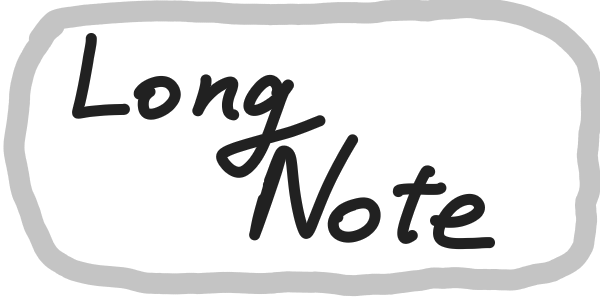 Long
Note